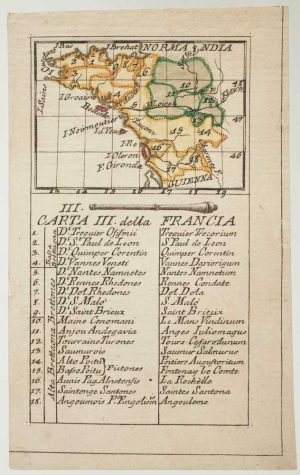 I. Bas
I. Brehat
NORMANDIA
I. Sains
I. Groais
Bloire
I. Noirmoutier
I. d Yeu
I. Re
I. Oleron
F. Gironda
GUIENNA
III.
CARTA III. della FRANCIA
Bassa Bretagna
Alta Brettagna Brettones
1. Dt. Treguier Ossmii Treguier Trecorium
2. Dt. St. Paul de Leon St. Paul de Leon
3. Dt. Quimper Corentin Quimper Corentin
4. Dt. Vannes Veneti Vannes Dariorigum
5. Dt. Nantes Namnetes Nantes Namnetum
6. Dt. Rennes Rhedones Rennes Condate
7. Dt. Dol Rhedones Dol Dola
8. Dt. S. Malò S. Malò
9. Dt. Saint Brieux Saint Brieux
10. Maine Cenomani Le Mans Vindinum
11. Anjou Andegavia Anges Juliomagus
12. Tourraine Turones Tours Cæsarodunum
13. Saumurois Saumur Salmurus
14. Alto Poitù Poitiers Augustoritum
15. Basso Poitù Pictones Fontenay le Comte
16. Aunis Pag. Alnetensis La Rochelle
17. Saintonge Santones Saintes Santona
18. Angoumois Pt. Engolism Angouleme